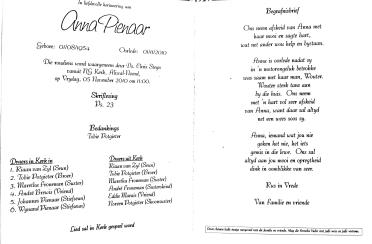 In liefdevolle herinnering aan
Anna Pienaar
Gebore: 01/08/1954
Oorlede: 01/11/2010
Die roudiens word waargeneem deur Ds. Chris Steyn
vanuit NG Kerk,
op Vrydag, 05 November 2010 om 11:00.
Skriflesing
Ps. 23
Bedankings
Tobie Potgieter
Draers in Kerk in
1. Kiaan van Zyl (Seun)
2. Tobie Potgieter (Broer)
3. Maretha Froneman (Suster)
4. André Brecs (Vriend)
5. Johannes Pienaar (Stiefseun)
6. Wynand Pienaar (Stiefseun)
Draers uit Kerk
Kiaan van Zyl (Seun)
Tobie Potgieter (Broer)
Maretha Froneman (Suster)
André Froneman
Eddie (Vriend)
Noreen Potgieter (Skoonsuster)
Lied sal in Kerk gespeel word
Begrafnisbrief
Ons neem afskeid van Anna met
haar mooi en sagte hart,
wat net ander wou help en bystaan.
Anna is oorlede nadat sy
in 'n motorongeluk betrokke
was saam met haar man, Wouter.
Wouter sterk tans aan
by die huis. Ons neem
met 'n hart vol seer afskeid
van Anna, want daar sal altyd
net een wees soos sy.
Anna, iemand wat jou nie
geken het nie, het iets
gemis in die lewe. Ons sal
altyd aan jou mooi en opregtheid
dink in oomblikke van seer.
Rus in Vrede
Van Familie en vriende